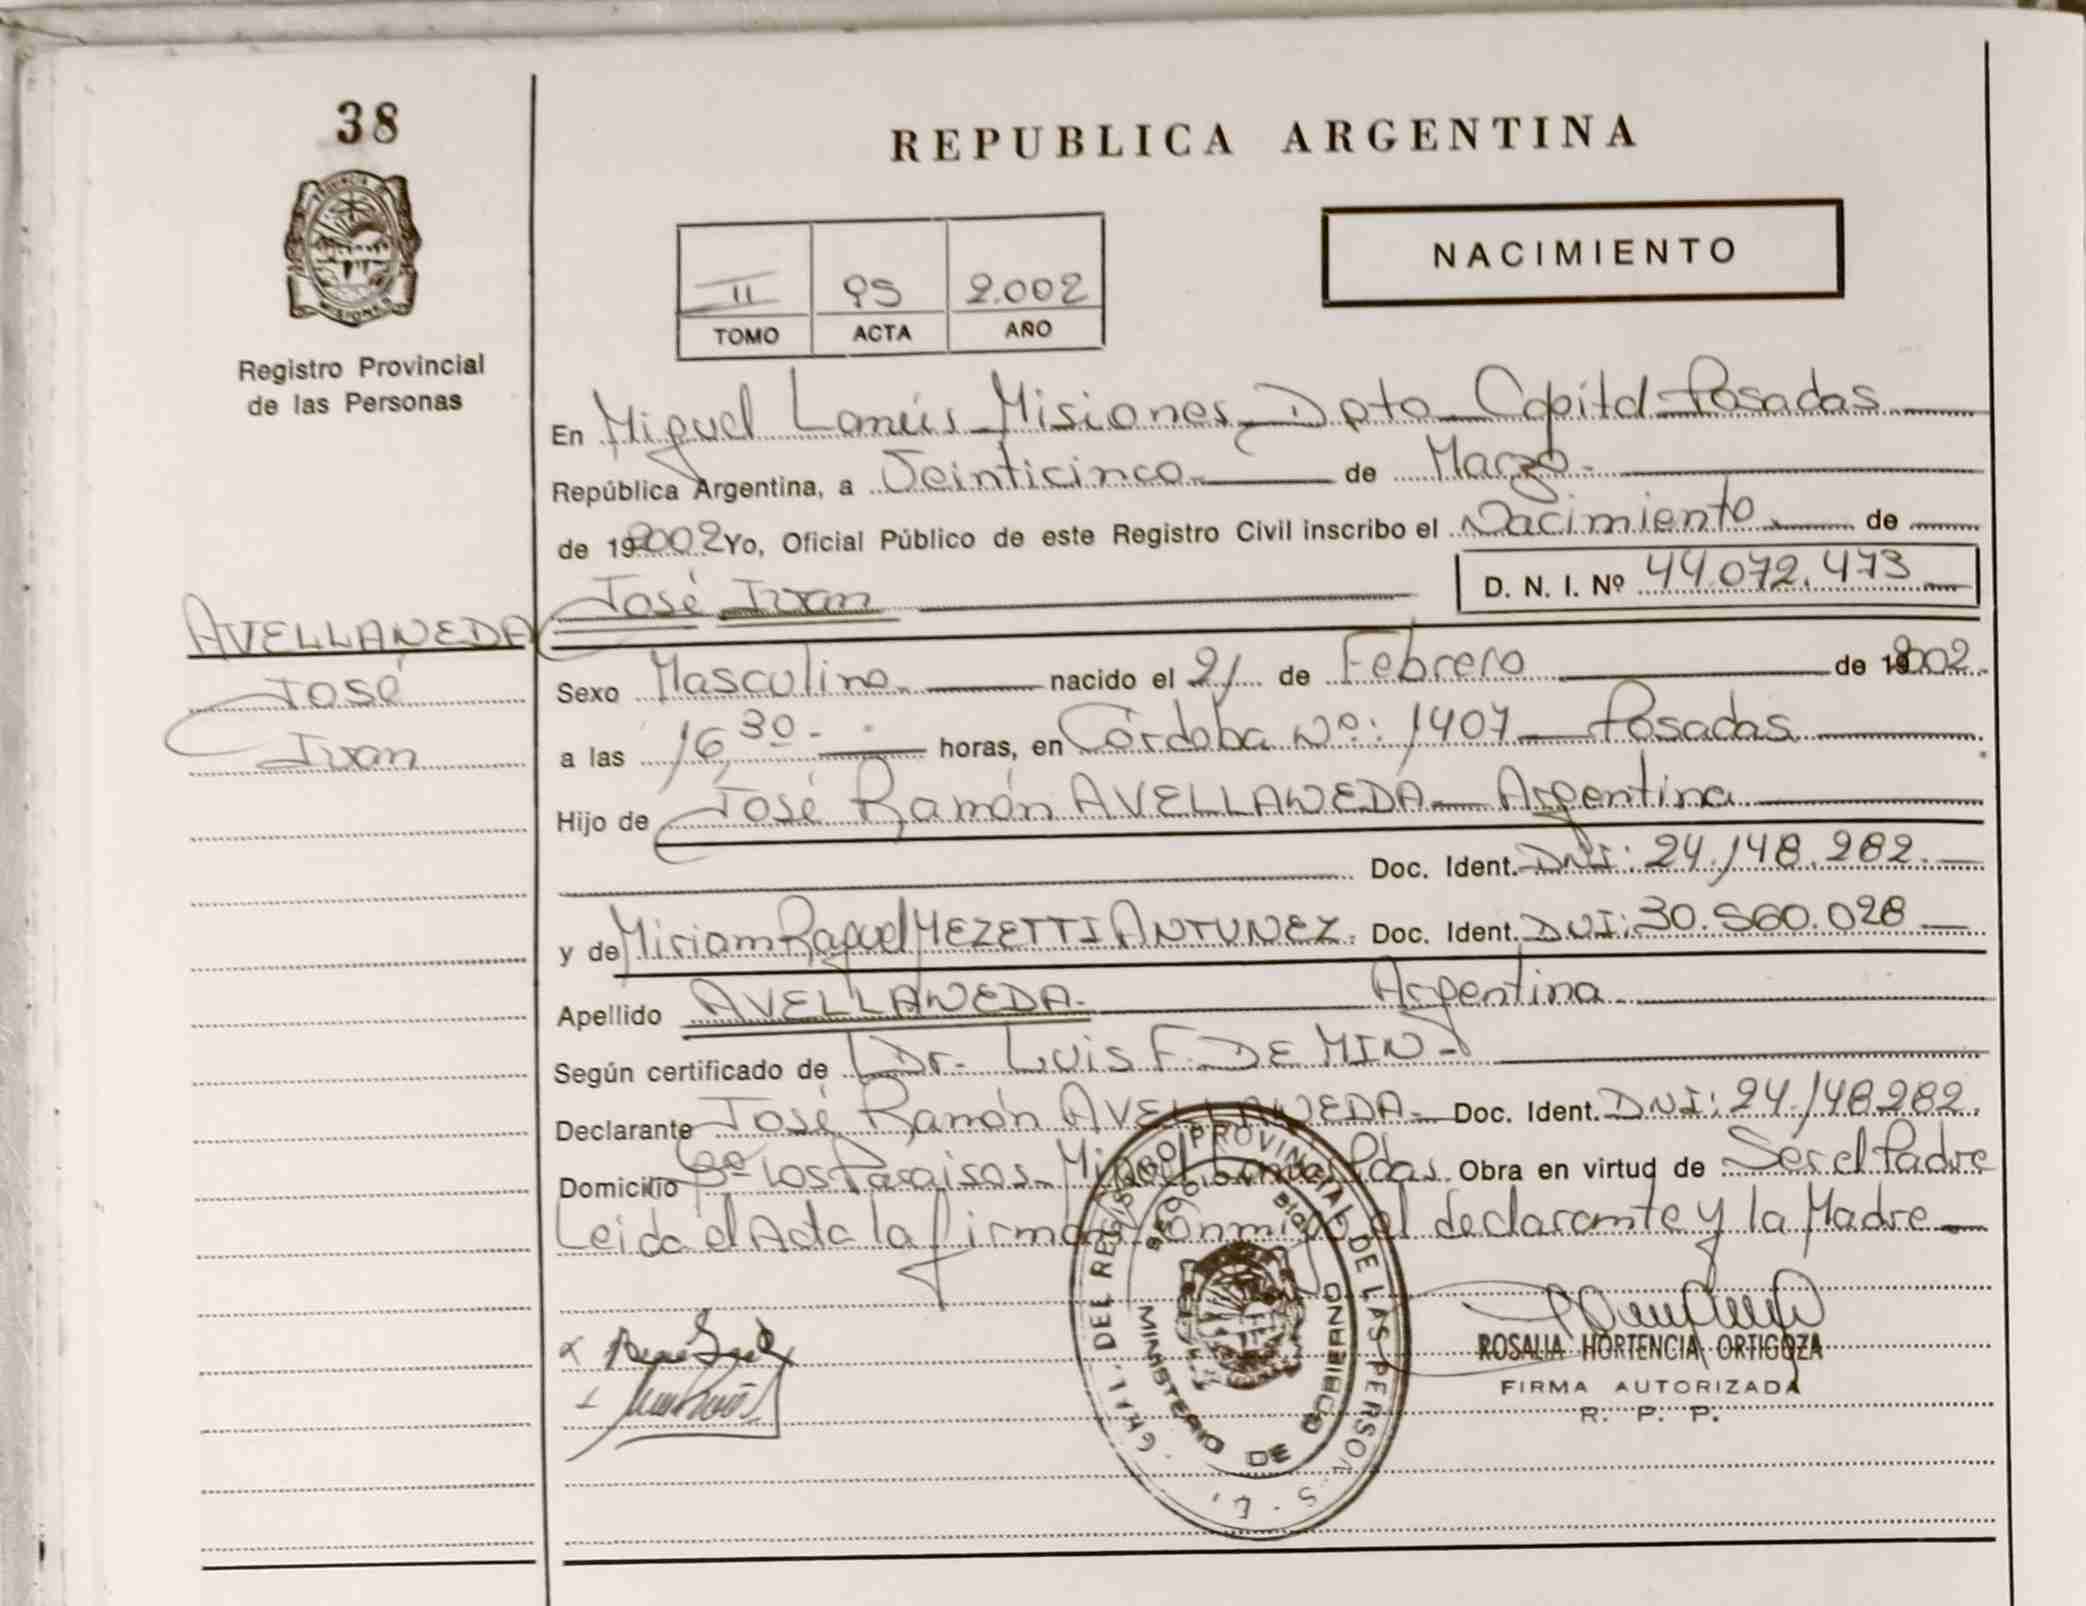 38
REPUBLICA ARGENTINA
NACIMIENTO
II 95 2.002
TOMO ACTA AÑO
Registro Provincial
de las Personas
En Miguel Lanús Misiones Dpto Capital Posadas
República Argentina, a Veinticinco de Marzo
de 192002 Yo, Oficial Público de este Registro Civil inscribo el Nacimiento de
José Ivan D. N. I. Nº 44.072.473
AVELLANEDA
José
Ivan
Sexo Masculino nacido el 21 de Febrero de 192002
a las 16,30 horas, en Córdoba Nº: 1407 Posadas
Hijo de José Ramón AVELLANEDA Argentina
Doc. Ident. DNI: 24.148.282.
y de Miriam Raquel MEZETTI ANTUNEZ. Doc. Ident. DNI: 30.560.028
Apellido AVELLANEDA. Argentina
Según certificado de Dr. Luis F. DE MIN
Declarante José Ramón AVELLANEDA Doc. Ident. DNI: 24.148282.
Domicilio Los Paraisos Miguel Lanus Pdas. Obra en virtud de Ser el Padre
Leida el Acta la firman conmigo el declarante y la Madre
DEL REGISTRO PROVINCIAL DE LAS PERSONAS
MINISTERIO DE GOBIERNO
ROSALIA HORTENCIA ORTIGOZA
FIRMA AUTORIZADA
R. P. P.